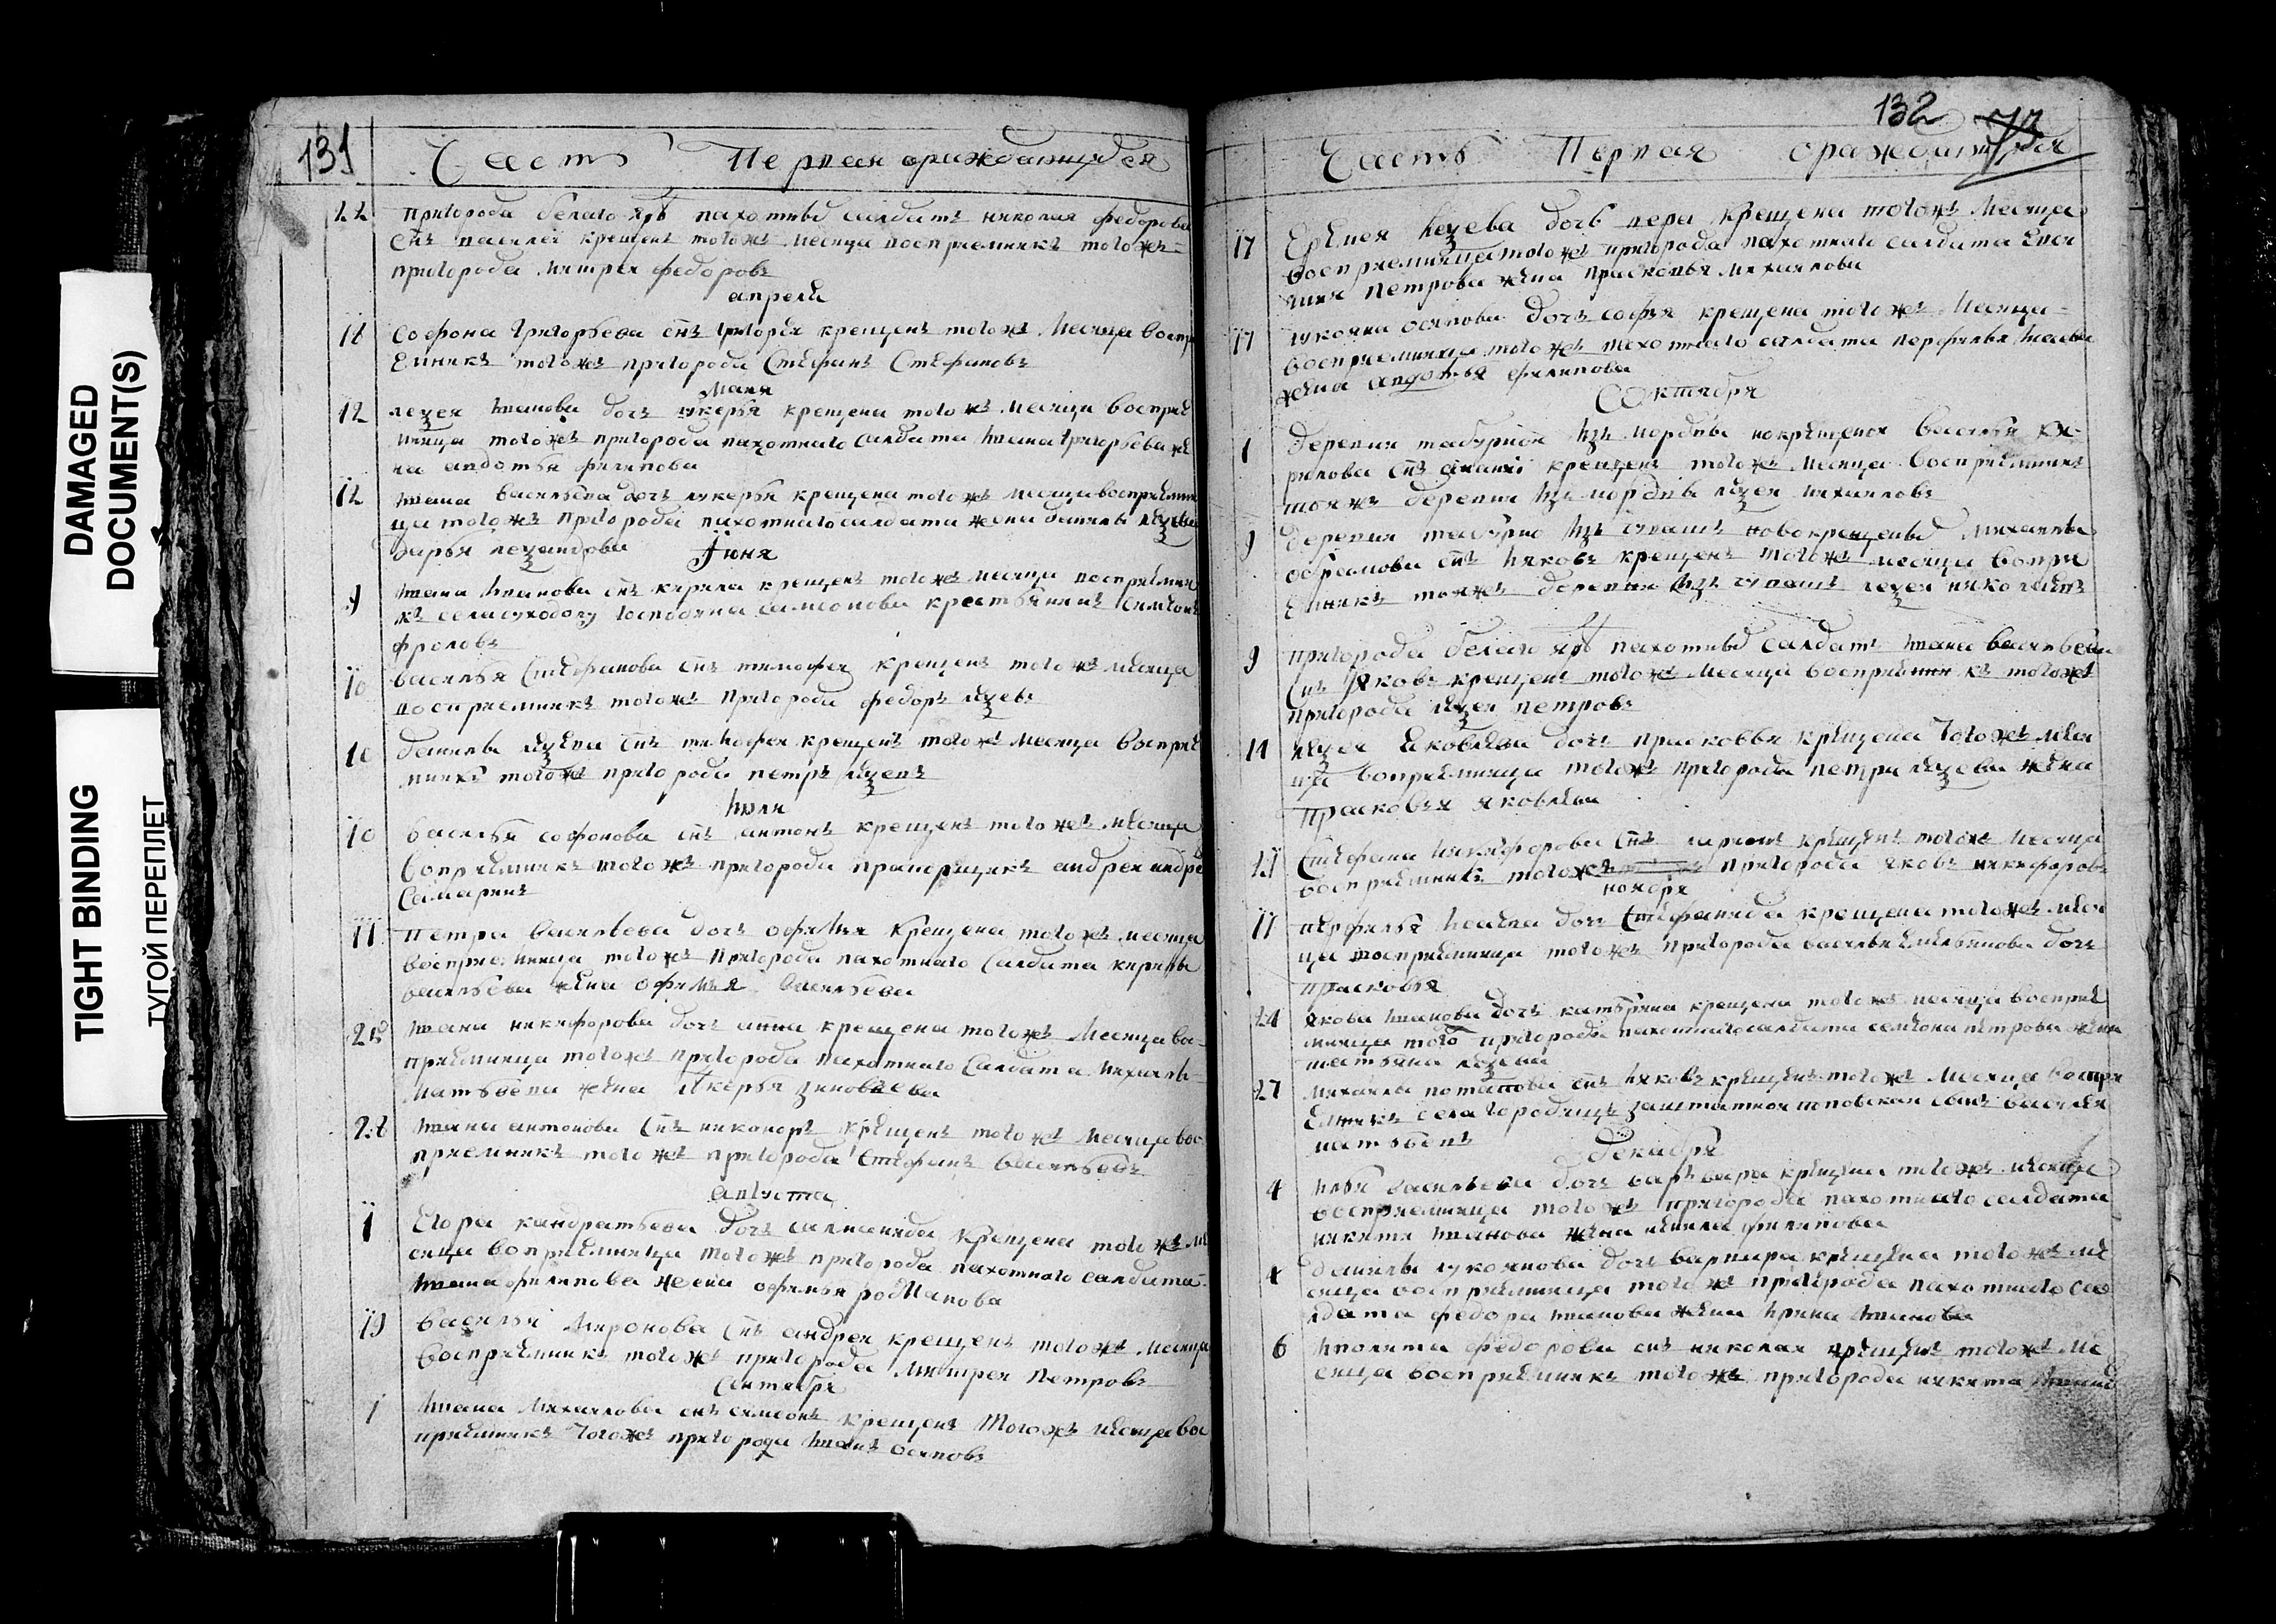 DAMAGED
DOCUMENT(S)
TIGHT BINDING
ТУГОЙ ПЕРЕПЛЕТ
131
Часть Первая ораждающихся
22 пригорода белаго яру пахотныя салдатъ николая федорова
снъ василей крещенъ тогожъ месяца восприемникъ тогожъ
пригорода митрей федоровъ
апреля
софона григорьева снъ григорей крещенъ тогожъ месяца воспри
емникъ тогожъ пригорода стефанъ стефановъ
маия
12 иванова дочь лукерья крещена тогожъ месяца восприе
мница тогожъ пригорода пахотнаго салдата ивана григорьева же
на авдотья филипова
12 ивана васильева дочь лукерья крещена тогожъ месяца восприемни
ца тогожъ пригорода пахотнаго салдата жена данилы
дарья
июня
9 ивана иванова снъ кирила крещенъ тогожъ месяца восприемни
къ села суходолу господина самсонова крестьянинъ симионъ
фроловъ
10 василья стефанова снъ тимофей крещенъ тогожъ месяца
восприемникъ тогожъ пригорода федоръ
10 данилы снъ тимофея крещенъ тогожъ месяца восприе
мникъ тогожъ пригорода петръ
июля
10 василья софонова снъ антонъ крещенъ тогожъ месяца
восприемникъ тогожъ пригорода прапорщикъ андрей андре
самаринъ
11 петра васильева дочь офимья крещена тогожъ месяца
восприемница тогожъ пригорода пахотнаго салдата кирилы
васильева жена офимья васильева
ивана никифорова дочь анна крещена тогожъ месяца во
приемница тогожъ пригорода пахотнаго салдата михаилы
матвеева жена лукерья зиновьева
28 ивана антонова снъ никоноръ крещенъ тогожъ месяца вос
приемникъ тогожъ пригорода стефанъ васильевъ
августа
1 егора кандратьева дочь саламанида крещена тогожъ ме
сяца восприемница тогожъ пригорода пахотнаго салдата
ивана филипова жена офимья родиапова
19 василья миронова снъ андрей крещенъ тогожъ месяца
восприемникъ тогожъ пригорода митрей петровъ
сентября
1 ивана михаилова снъ симеонъ крещенъ тогожъ месяца вос
приемникъ тогожъ пригорода иванъ осиповъ
132
Часть Первая ораждающихся
17 дочь вера крещена тогожъ месяца
восприемница тогожъ пригорода пахотнаго салдата
петрова жена прасковья михаилова
17 лукояна осипова дочь софья крещена тогожъ месяца
восприемница тогожъ пахотнаго салдата перфилья исаева
жена авдотья филипова
октября
1 деревни табурной изъ мордвы новокрещеной василья ки-
рилова снъ ананий крещенъ тогожъ месяца восприемникъ
тояжъ деревни изъ мордвы михаиловъ
9 деревни изъ чувашъ новокрещены михаилы
обрамова снъ яковъ крещенъ тогожъ месяца воспри
емникъ тояжъ деревни изъ чувашъ николаевъ
9 пригорода белаго яру пахотны салдатъ ивана васильева
снъ яковъ крещенъ тогожъ месяца восприемникъ тогожъ
пригорода петровъ
11 яковлева дочь прасковья крещена тогожъ меся
ца восприемница тогожъ пригорода петра жена
прасковья яковлева
стефана никифорова снъ ларионъ крещенъ тогожъ месяца
восприемникъ тогожъ пригорода яковъ никифоровъ
ноября
11 перфилья исаева дочь стефанида крещена тогожъ меся
ца восприемница тогожъ пригорода василья емельянова дочь
прасковья
24 якова иванова дочь катерина крещена тогожъ месяца восприе
мница того пригорода пахотнаго салдата семиона петрова жена
татьяна
27 михаила потапова снъ яковъ крещенъ тогожъ месяца воспри
емникъ села городищъ заштатной поповской сынъ василей
матвеевъ
декабря
4 ильи васильева дочь варъвара крещена тогожъ месяца
восприемница тогожъ пригорода пахотнаго салдата
никити иванова жена ненила филипова
4 данилы лукоянова дочь варвара крещена тогожъ ме
сяца восприемница тогожъ пригорода пахотнаго сал
дата федора иванова жена ирина иванова
6 иполита федорова снъ николай крещенъ тогожъ ме
сяца восприемникъ тогожъ пригорода никита ивановъ